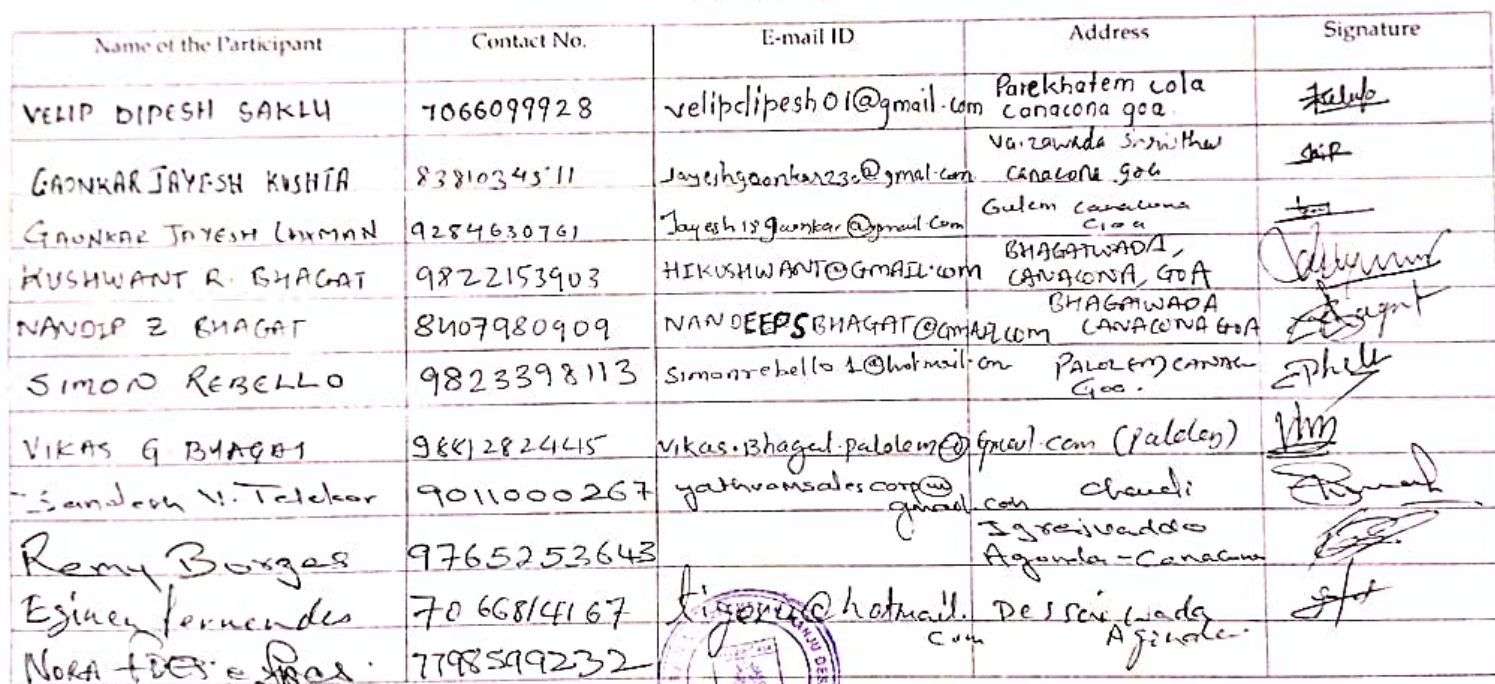 Name of the Participant Contact No. E-mail ID Address Signature
VELIP DIPESH SAKLU 7066099928 velipdipesh01@gmail.com Parekhatem cola
canacona goa
GAONKAR JAYESH KUSHTA 8381034511 canacona goa
GAONKAR JAYESH LAXMAN 9284630761 Jayesh18gaonkar@gmail.com Gulem canacona
Goa
KUSHWANT R. BHAGAT 9822153903 HIKUSHWANT@GMAIL.com BHAGATWADA,
CANACONA, GOA
NANDIP Z BHAGAT 8407980909 NANDEEPSBHAGAT@GMAIL.com BHAGATWADA
CANACONA GOA
SIMON REBELLO 9823398113 simonrebello1@hotmail.com PALOLEM CANAC
Goa.
VIKAS G BHAGAT vikas.Bhagat.palolem@gmail.com (palolem)
Sandesh V. Telekar 9011000267 yathvamsalescorp@
gmail.com Chaudi
Remy Borges 9765253643
Agonda-Canacona
Fernandes 7066814167 @hotmail.
com Dessai wada
NORA 7798599232